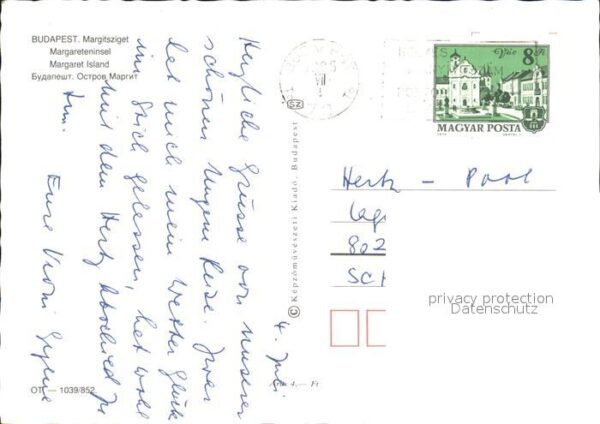 BUDAPEST. Margitsziget
Margareteninsel
Margaret Island
Будапешт. Остров Маргит
Herzliche Grüsse von unserer
schönen Ungarn Reise. Zwar
hat mich mein Wetter Glück
im Stich gelassen, hat wohl
mit dem Hertz Abschied zu
tun.
Eure Vroni
4. Juni
OTI — 1039/852
© Képzőművészeti Kiadó, Budapest
SZ
Ára: 4,— Ft
Vác 8 Ft
MAGYAR POSTA
Hertz - Pool
802
SCH
privacy protection
Datenschutz